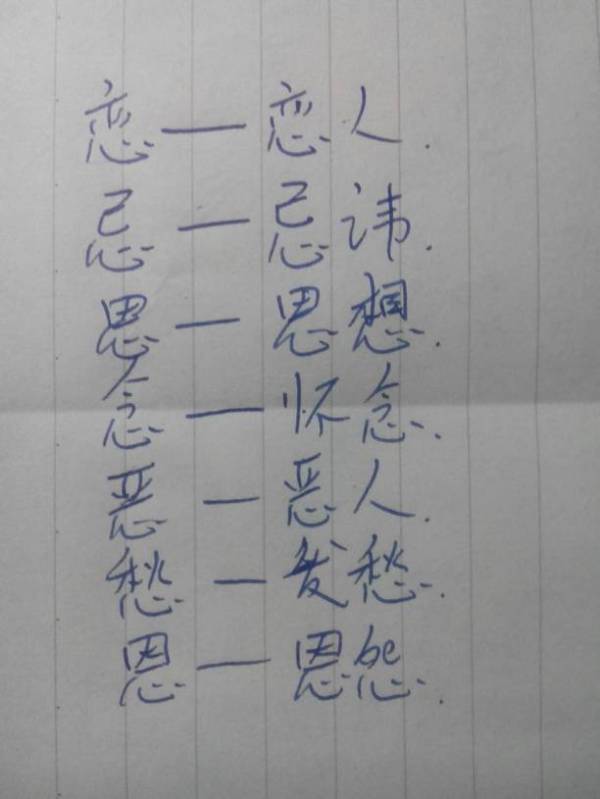 恋—恋人.
忌—忌讳.
思—思想.
念—怀念.
恶—恶人.
愁—发愁.
恩—恩怨.